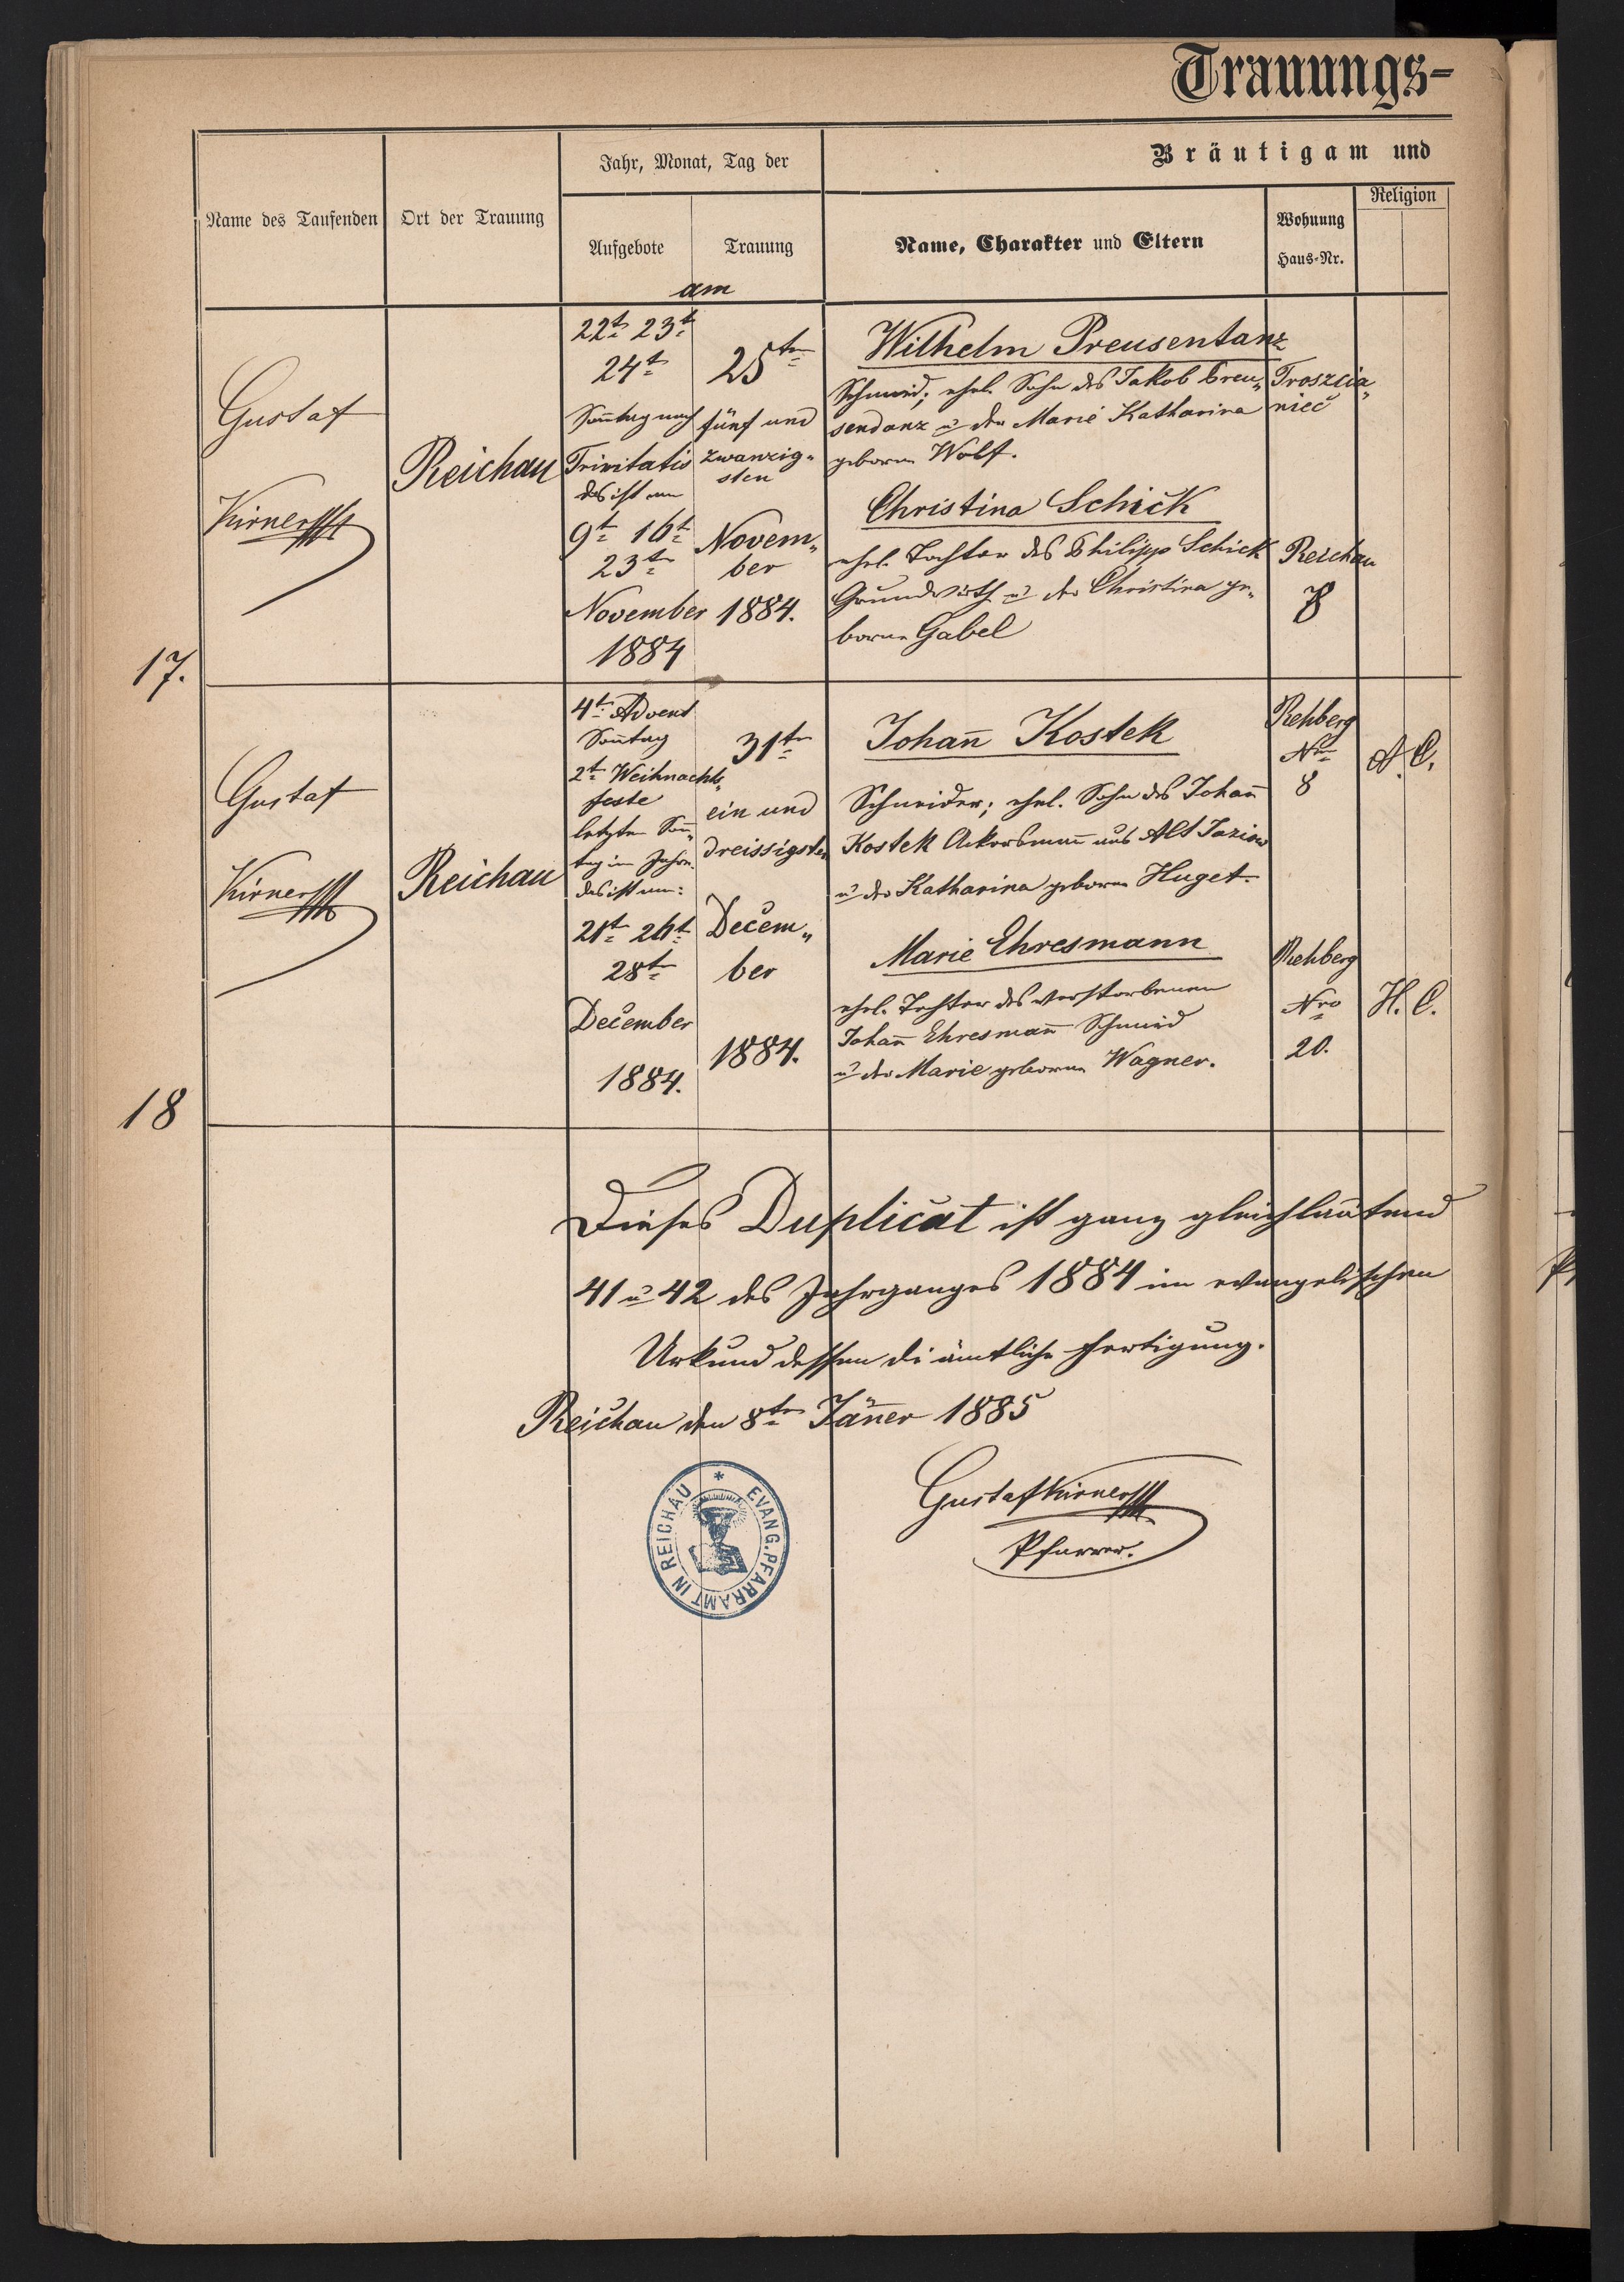 Trauungs-
Name des Taufenden
Ort der Trauung
Jahr, Monat, Tag der
Aufgebote
Trauung
am
Bräutigam und
Name, Charakter und Eltern
Wohnung
Haus-Nr.
Religion
17.
Gustaf
Kirner
Reichau
22t 23t
24t
Soñtag nach
Trinitatis
das ist am
9t 16t
23t
November
1884
25tn
fünf und
zwanzig„
sten
Novem„
ber
1884.
Wilhelm Preusentanz
Schmied; ehel. Sohn des Jakob Preu„
sendanz u der Marie Katharina
geborene Wolf.
Troszcia„
niec
Christina Schick
ehel. Tochter des Philipp Schick
Grundwirth u der Christina ge„
borene Gabel
Reichau
8
18
Gustaf
Kirner
Reichau
4t Advent
Soñtag
2t Weihnachts„
feste
letzten Soñ„
tag im Jahre
das ist am:
21t 26t
28tn
December
1884.
31tn
ein und
dreissigsten
Decem„
ber
1884.
Johañ Kostek
Schneider; ehel. Sohn des Johañ
Kostek Ackersmañ aus Alt Jaziow
u der Katharina geborene Huget.
Rehberg
Nro
8
A. C.
Marie Ehresmann
ehel. Tochter des verstorbenen
Johañ Ehresmañ Schmied
u der Marie geborene Wagner.
Rehberg
Nro
20.
H. C.
Dieses Duplicat ist ganz gleichlautend
41 u 42 des Jahrganges 1884 im evangelischen
Urkund dessen di ämtliche Fertigung.
Reichau den 8tn Jäñer 1885
EVANG. PFARRAMT IN REICHAU *
Gustaf Kirner
Pfarrer.